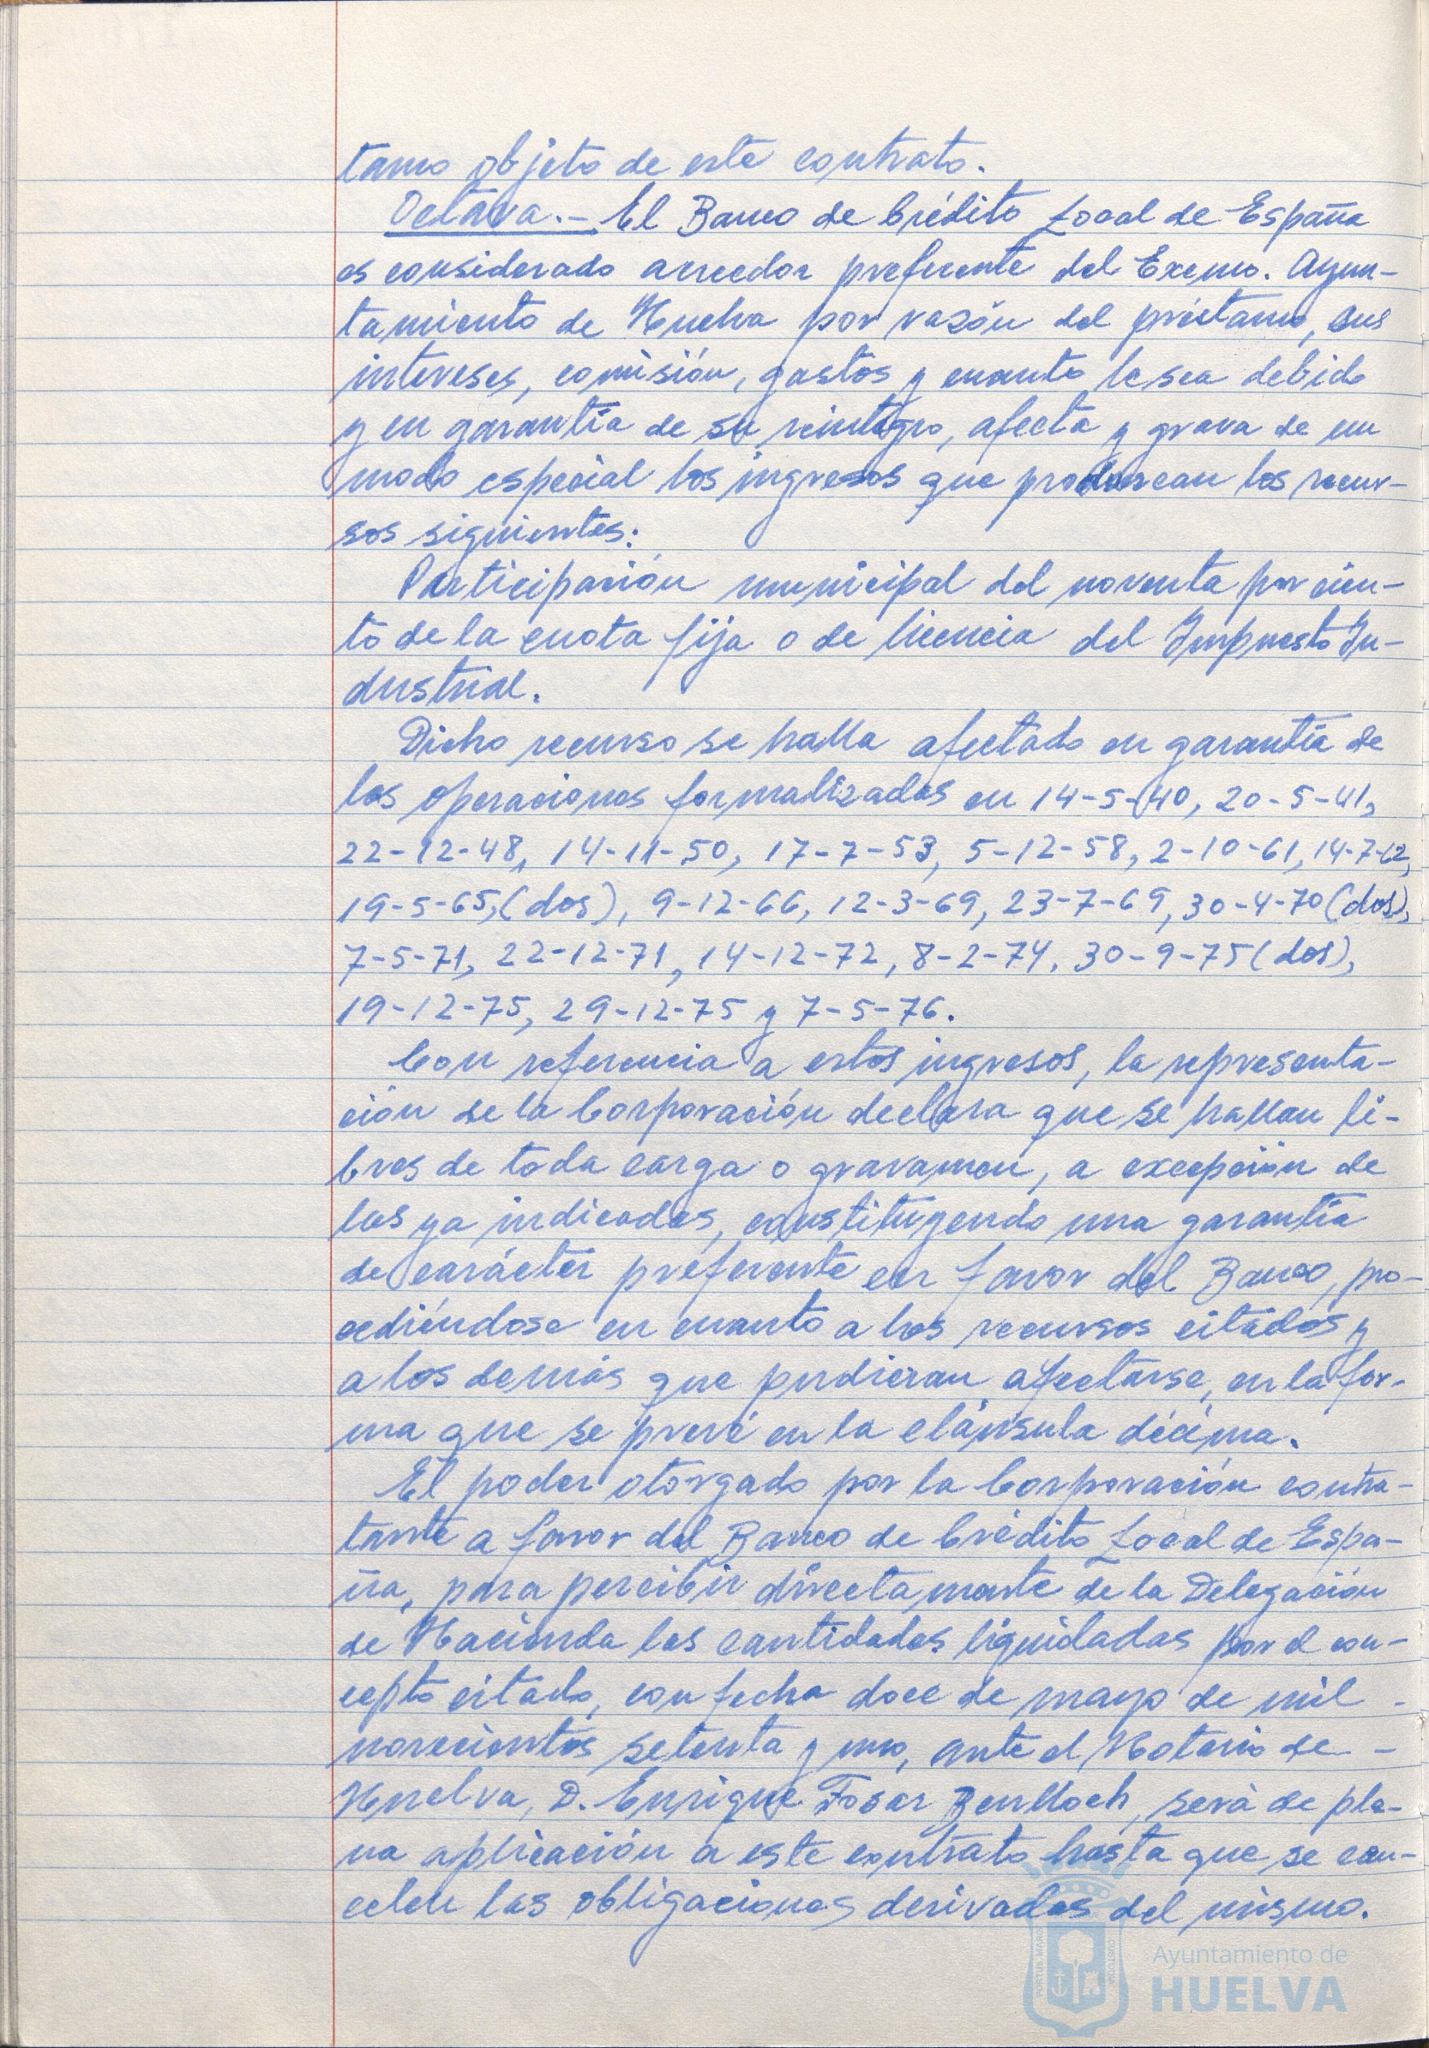 tamo objeto de este contrato.
Octava.- El Banco de Crédito Local de España
es considerado acreedor preferente del Excmo. Ayun-
tamiento de Huelva por razón del préstamo, sus
intereses, comisión, gastos y cuanto le sea debido
y en garantía de su reintegro, afecta y grava de un
modo especial los ingresos que produzcan los recur-
sos siguientes:
Participación municipal del noventa por cien-
to de la cuota fija o de licencia del Impuesto In-
dustrial.
Dicho recurso se halla afectado en garantía de
las operaciones formalizadas en 14-5-40, 20-5-41,
22-12-48, 14-11-50, 17-7-53, 5-12-58, 2-10-61, 14-7-62,
19-5-65,(dos), 9-12-66, 12-3-69, 23-7-69, 30-4-70(dos),
7-5-71, 22-12-71, 14-12-72, 8-2-74, 30-9-75(dos),
19-12-75, 29-12-75 y 7-5-76.
Con referencia a estos ingresos, la representa-
ción de la Corporación declara que se hallan li-
bres de toda carga o gravamen, a excepción de
las ya indicadas, constituyendo una garantía
de carácter preferente en favor del Banco, pro-
cediéndose en cuanto a los recursos citados y
a los demás que pudieran afectarse, en la for-
ma que se prevé en la cláusula décima.
El poder otorgado por la Corporación contra-
tante a favor del Banco de Crédito Local de Espa-
ña, para percibir directamente de la Delegación
de Hacienda las cantidades liquidadas por el con-
cepto citado, con fecha doce de mayo de mil -
novecientos setenta y uno, ante el Notario de -
Huelva, D. Enrique Fosar Benlloch, será de ple-
na aplicación a este contrato hasta que se can-
celen las obligaciones derivadas del mismo.
PORTUS MARIS
CUSTODIA
Ayuntamiento de
HUELVA